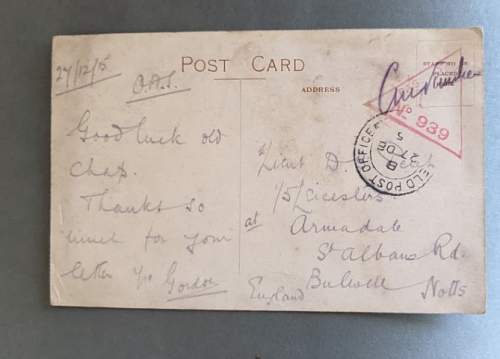 27/12/15
O.A.S.
POST CARD
Good luck old
chap.
Thanks so
much for your
letter yrs Gordon
ADDRESS
STAMP TO
PLACED
No 939
FIELD POST OFFICE
B
27 DE
5
Lieut D.
1/5 Leicesters
at Armadale
St Albans Rd.
Notts
England